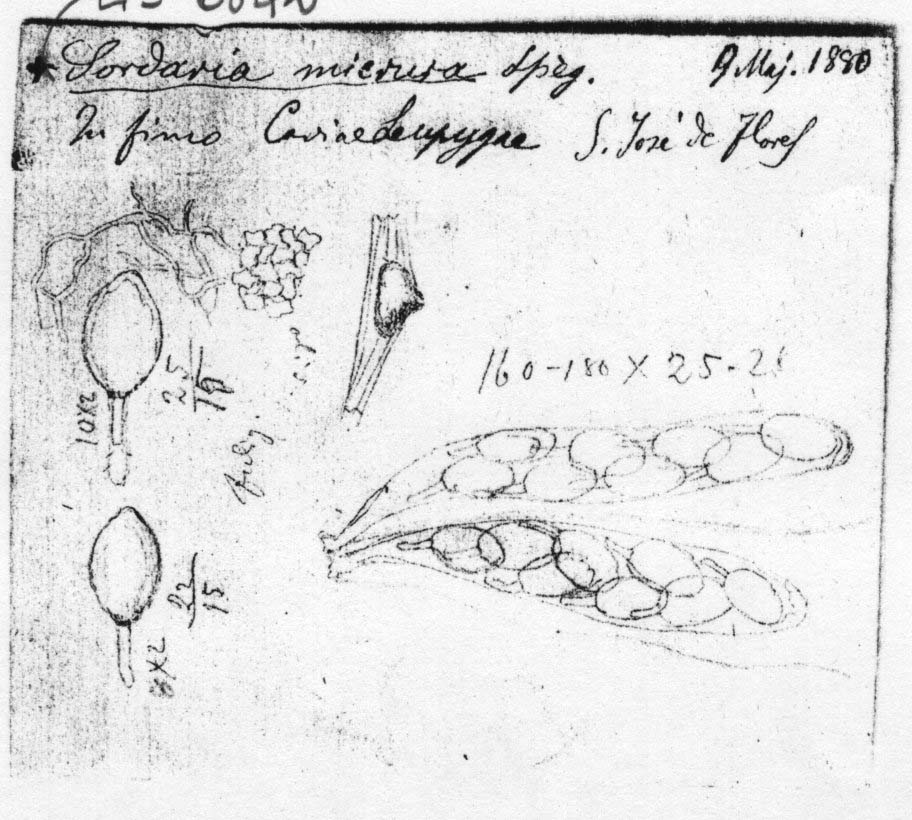 Sordaria micrura Speg. 9 Maj. 1880
In fimo Caviae Leucopygae S. José de Flores
25
19
10x2
160-180 x 25-28
22
15
8x2